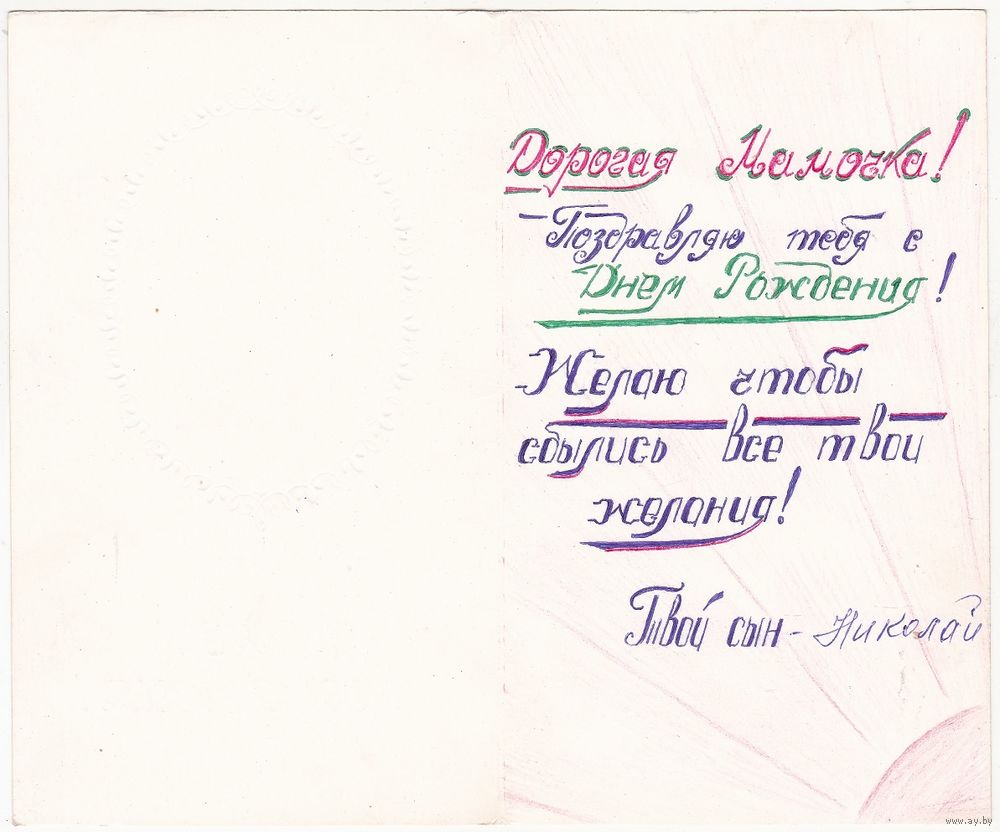 Дорогая Мамочка!
- Поздравляю тебя с
Днем Рождения!
- Желаю чтобы
сбылись все твои
желания!
Твой сын - Николай
www.ay.by